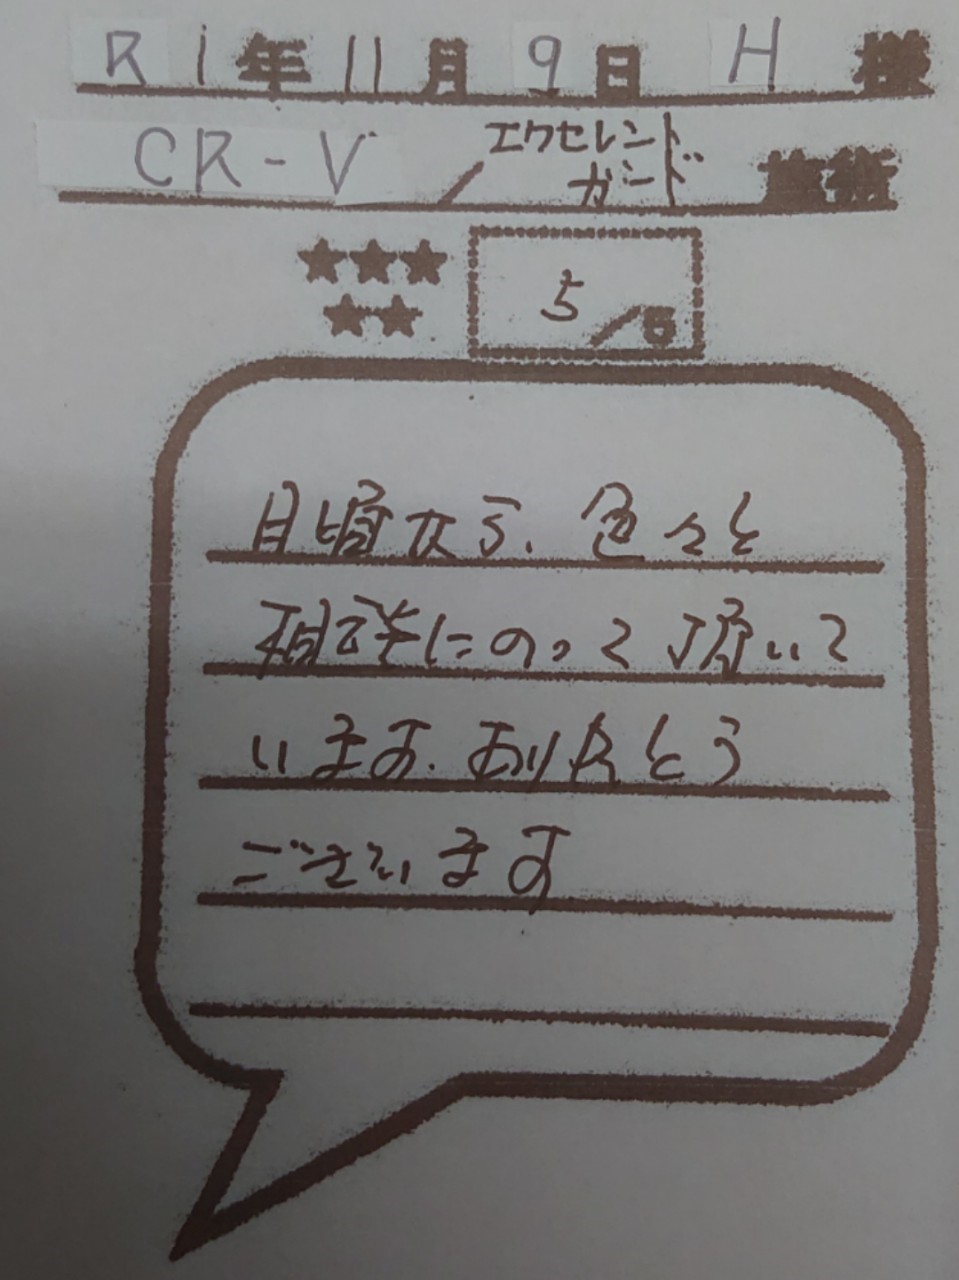 R1年11月9日 H 様
CR-V / エクセレントガード 施術
★★★
★★
5/5
日頃から、色々と
相談にのって頂いて
います。ありがとう
ございます